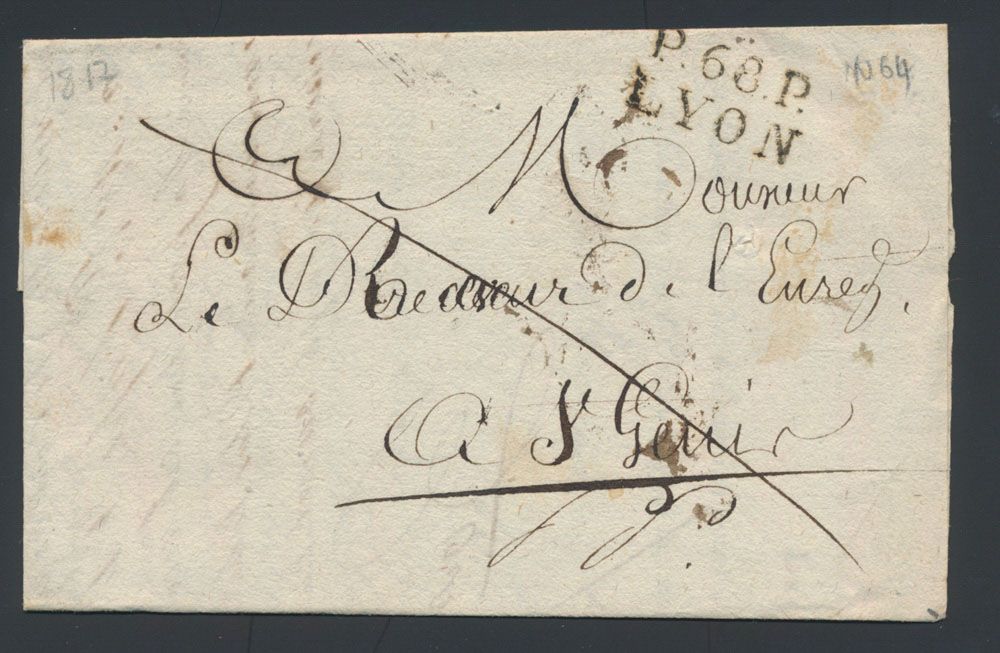 1817
N64
P.68.P.
LYON
A Monsieur
Le Receveur de l'Enreg.
A St Genis